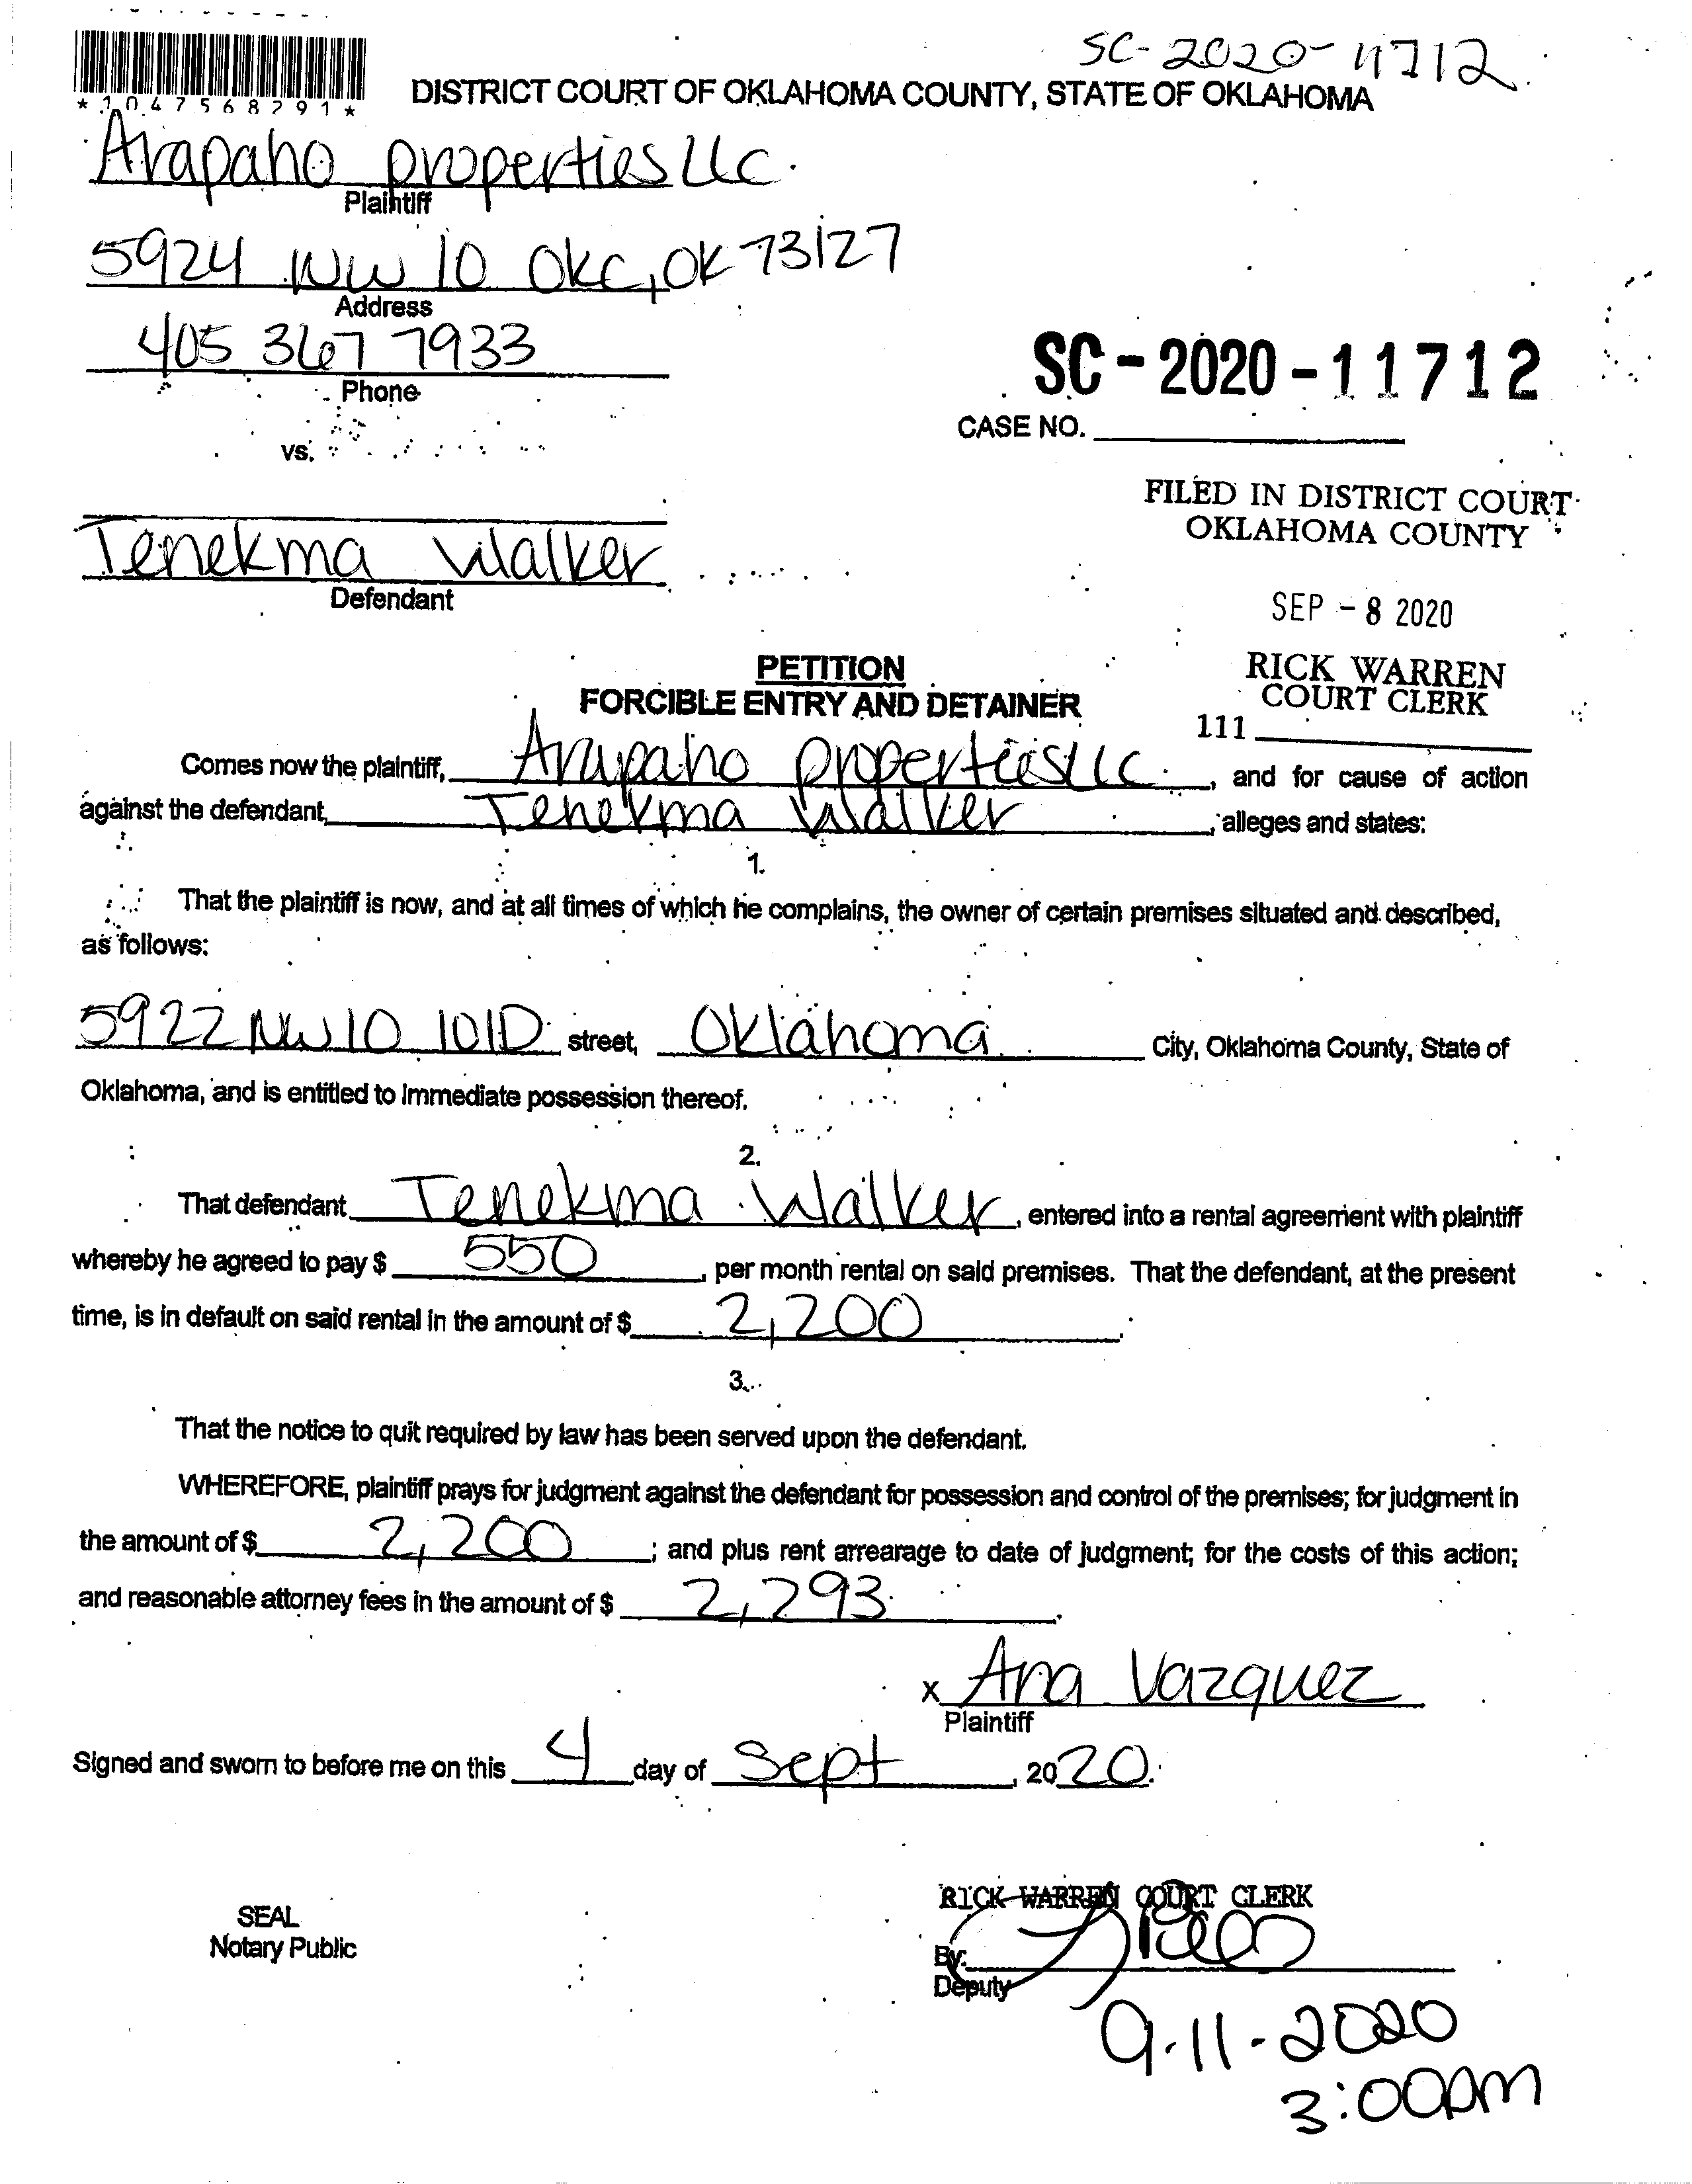 SC-2020-11712
*1047568291*
DISTRICT COURT OF OKLAHOMA COUNTY, STATE OF OKLAHOMA
Arapaho properties LLC.
Plaintiff
5924 NW 10 OKC, OK 73127
Address
405 367 7933
Phone
SC-2020-11712
CASE NO.
vs.
FILED IN DISTRICT COURT
OKLAHOMA COUNTY
Tenekma Walker
Defendant
SEP - 8 2020
PETITION
FORCIBLE ENTRY AND DETAINER
RICK WARREN
COURT CLERK
111
Comes now the plaintiff, Arapaho properties LLC., and for cause of action
against the defendant, Tenekma Walker, alleges and states:
1.
That the plaintiff is now, and at all times of which he complains, the owner of certain premises situated and described,
as follows:
5922 NW 10 101D street, Oklahoma City, Oklahoma County, State of
Oklahoma, and is entitled to immediate possession thereof.
2.
That defendant Tenekma Walker, entered into a rental agreement with plaintiff
whereby he agreed to pay $ 550, per month rental on said premises. That the defendant, at the present
time, is in default on said rental in the amount of $ 2,200.
3.
That the notice to quit required by law has been served upon the defendant.
WHEREFORE, plaintiff prays for judgment against the defendant for possession and control of the premises; for judgment in
the amount of $ 2,200; and plus rent arrearage to date of judgment; for the costs of this action;
and reasonable attorney fees in the amount of $ 2,293.
x Ana Vazquez
Plaintiff
Signed and sworn to before me on this 4 day of Sept, 2020.
SEAL
Notary Public
RICK WARREN COURT CLERK
By:
Deputy
9-11-2020
3:00pm